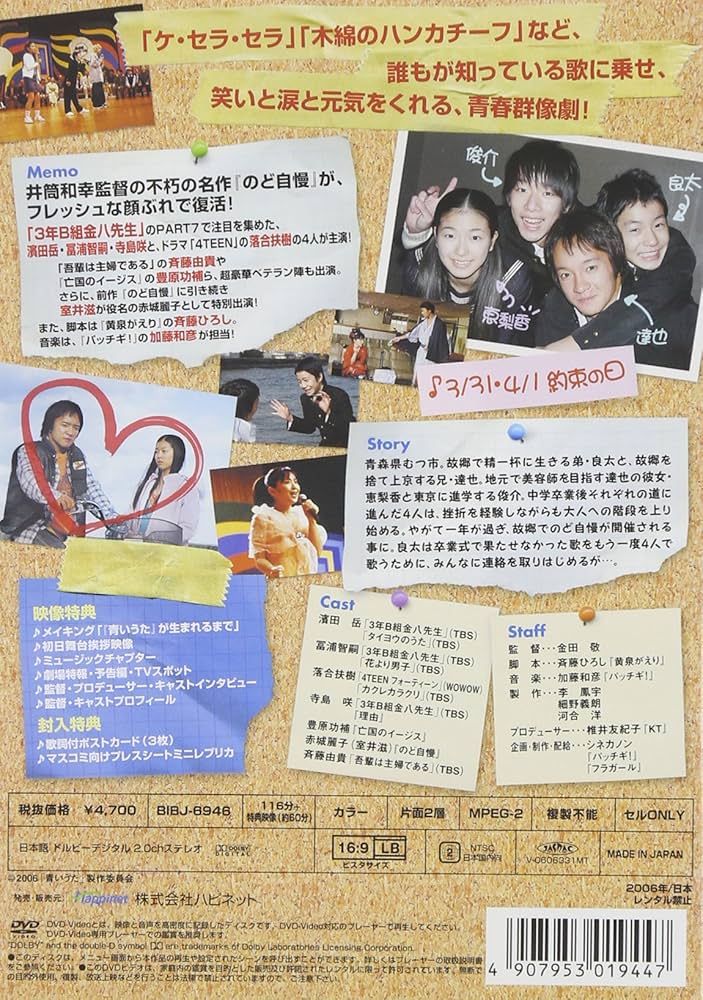 「ケ・セラ・セラ」「木綿のハンカチーフ」など、
誰もが知っている歌に乗せ、
笑いと涙と元気をくれる、青春群像劇!
Memo
井筒和幸監督の不朽の名作『のど自慢』が、
フレッシュな顔ぶれで復活!
「3年B組金八先生」のPART7で注目を集めた、
濱田岳・冨浦智嗣・寺島咲と、ドラマ「4TEEN」の落合扶樹の4人が主演!
「吾輩は主婦である」の斉藤由貴や
「亡国のイージス」の豊原功補ら、超豪華ベテラン陣も出演。
さらに、前作『のど自慢』に引き続き
室井滋が役名の赤城麗子として特別出演!
また、脚本は『黄泉がえり』の斉藤ひろし。
音楽は、『パッチギ!』の加藤和彦が担当!
俊介
良太
恵梨香
達也
♪3/31・4/1 約束の日
Story
青森県むつ市。故郷で精一杯に生きる弟・良太と、故郷を
捨て上京する兄・達也。地元で美容師を目指す達也の彼女・
恵梨香と東京に進学する俊介。中学卒業後それぞれの道に
進んだ4人は、挫折を経験しながらも大人への階段を上り
始める。やがて一年が過ぎ、故郷でのど自慢が開催される
事に。良太は卒業式で果たせなかった歌をもう一度4人で
歌うために、みんなに連絡を取りはじめるが…。
映像特典
♪メイキング「『青いうた』が生まれるまで」
♪初日舞台挨拶映像
♪ミュージックチャプター
♪劇場特報・予告編・TVスポット
♪監督・プロデューサー・キャストインタビュー
♪監督・キャストプロフィール
封入特典
♪歌詞付ポストカード(3枚)
♪マスコミ向けプレスシートミニレプリカ
Cast
濱田 岳 「3年B組金八先生」(TBS)
「タイヨウのうた」(TBS)
冨浦智嗣 「3年B組金八先生」(TBS)
「花より男子」(TBS)
落合扶樹 「4TEEN フォーティーン」(WOWOW)
「カクレカラクリ」(TBS)
寺島 咲 「3年B組金八先生」(TBS)
「理由」
豊原功補 「亡国のイージス」
赤城麗子(室井滋)「のど自慢」
斉藤由貴 「吾輩は主婦である」(TBS)
Staff
監 督…金田 敬
脚 本…斉藤ひろし『黄泉がえり』
音 楽…加藤和彦『パッチギ!』
製 作…李 鳳宇
細野義朗
河合 洋
プロデューサー…椎井友紀子『KT』
企画・制作・配給…シネカノン
『パッチギ!』
『フラガール』
税抜価格 ¥4,700 BIBJ-6946 116分+特典映像(約60分) カラー 片面2層 MPEG-2 複製不能 セルONLY
日本語 ドルビーデジタル 2.0chステレオ DOLBY DIGITAL 16:9 LB ビスタサイズ 2 NTSC 日本国内向 V-0606331MT MADE IN JAPAN
©2006「青いうた」製作委員会
発売・販売元: Happinet 株式会社ハピネット
2006年/日本
レンタル禁止
DVD VIDEO DVD-Videoとは、映像と音声を高密度に記録したディスクです。DVD-Video対応のプレーヤーで再生してください。
DVD-Video専用プレーヤーでの鑑賞を推奨します。
"DOLBY" and the double-D symbol are trademarks of Dolby Laboratories Licensing Corporation.
●このディスクは、メニュー画面から本作品の再生や設定されたシーンを呼び出すことができます。詳しくはプレーヤーの取扱説明書
をご参照ください。●このDVDビデオは、家庭内の鑑賞を目的とした販売及び許諾されたレンタルに限って許可されています。無断で
の目的外使用、複製、放送上映などを行うことは法律で禁止されていますので、ご注意下さい。
4 907953 019447